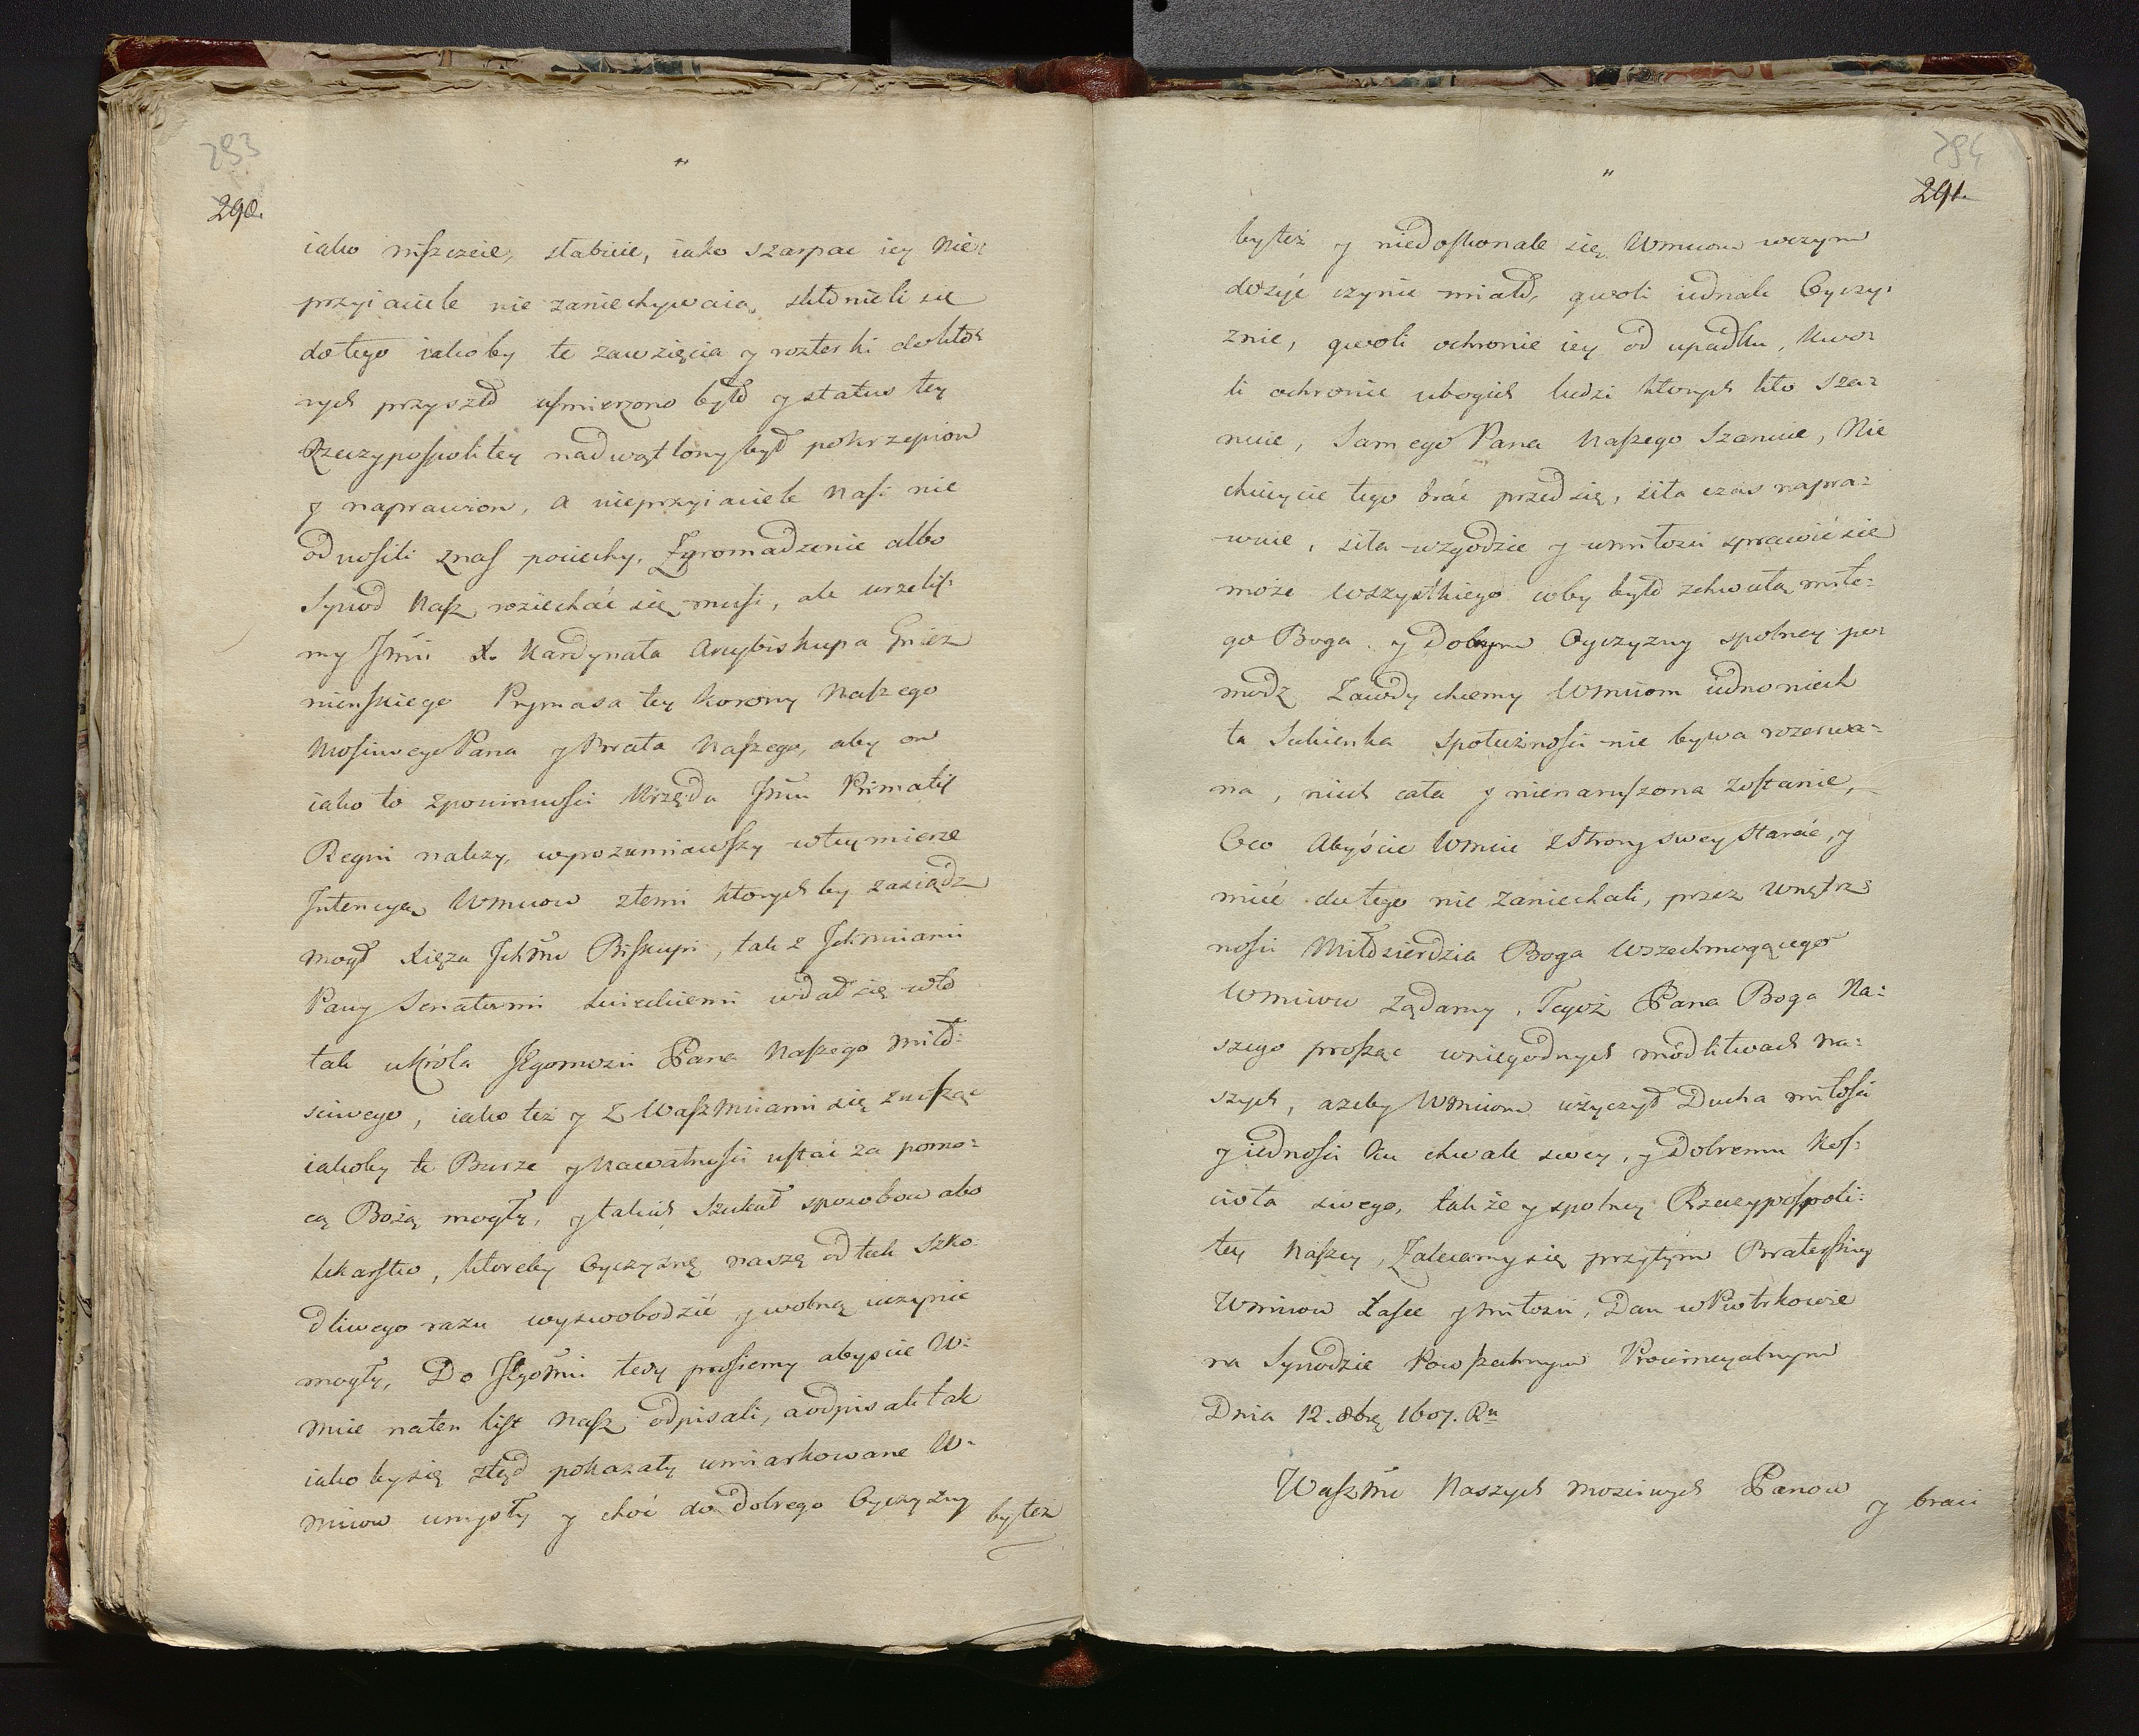 293
290.
"
iako niszczcie, słabicie, iako szarpac iey Nie=
przyiaciele nie zaniechywaią, skłonieli się
do tego iakoby te zawzięcia y rozterki do któ=
rych przyszło usmierzono było y status tey
Rzeczypospolitey nadwątlony był pokrzepion
y naprawion, a nieprzyiaciele Nasi nie
odnosili z nas pociechy. Zgromadzenie albo
Synod Nasz roziechać się musi, ale
my Jmci X. Kardynała Arcybiskupa Gniez
nienskiego Prymasa tey Korony Naszego
Mosciwego Pana y Brata Naszego, aby on
iako to z powinnosci Urzędu Jmci Primatis
Regni należy, wyrozumiawszy w tey mierze
Intencyą Wmciow z temi ktorych by zasiądz
mogł Xięża Jchmc Biskupi, tak z Jchmciami
Pany Senatormi swieckiemi wdał się w to
tak u Króla Jegomosci Pana Naszego Miło=
sciwego, iako też y z Waszmciami się znosząc
iakoby te Burze y Nawałnosci ustać za pomo=
cą Bożą mogły, y takich szukał sposobow abo
lekarstw, ktoreby Oyczyznę naszę od tak szko=
dliwego razu wyswobodzić y wolną uczynić
mogły, Do Jegomci tedy prosiemy abyscie W=
mcie na ten list Nasz odpisali, a odpisali tak
iako by się ztąd pokazały umiarkowane W=
mciow umysły y chęć do dobrego Oyczyzny
by też
294
291.
"
by też y niedoskonale się Wmciom w czym
dosyć czynic miało, gwoli iednak Oyczy=
znie, gwoli ochronie iey od upadku, Kwo=
li ochronie ubogich ludzi ktorych kto sza=
nuie, samego Pana Naszego szanuie, Nie
chcieycie tego brać przed się, siła czas napra=
wuie, siła w zgodzie y w miłosci sprawić się
może wszystkiego coby było z chwałą miłe=
go Boga y Dobrym Oyczyzny spolney po=
modz Zawdy chcemy Wmciom iedno niech
ta Sukienka społeczności nie bywa rozerwa=
na, niech cała y nienaruszona zostanie,
O co Abyście Wmcie z strony swey starać, y
mieć do tego nie zaniechali, przez Wnętrz=
nosci Miłosierdzia Boga Wszechmogącego
Wmciow żądamy, Tegoż Pana Boga Na=
szego prosząc w niegodnych modlitwach na=
szych, ażeby Wmciom użyczył Ducha miłosci
y iednosci ku chwale swey, y Dobremu Kos=
cioła swego, także y spolney Rzeczypospoli=
tey Naszey, Zalecamy się przytym Braterskiey
Wmciow Łasce y miłosci, Dan w Piotrkowie
na Synodzie Powszechnym Prowincyalnym
Dnia 12. 8brą 1607. Ru
Waszmc Naszych Mosciwych Panow
y braci